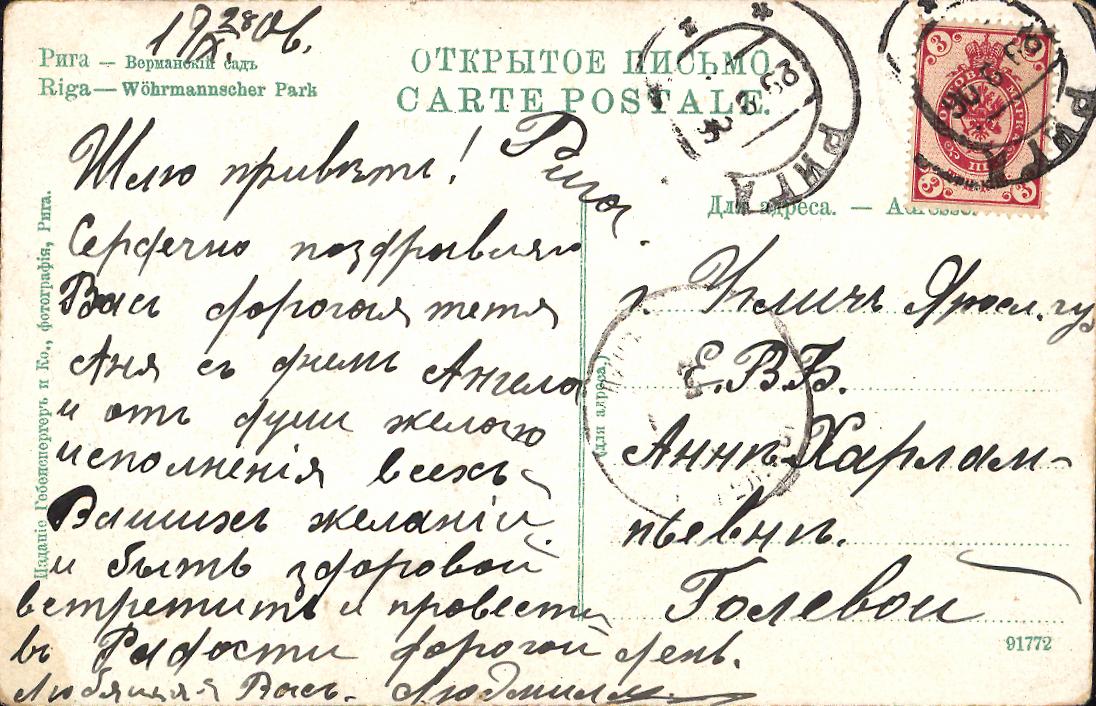 Рига — Верманскій садъ
Riga — Wöhrmannscher Park
ОТКРЫТОЕ ПИСЬМО.
CARTE POSTALE.
РИГА
РИГА
3
3
3
Для адреса. — Adresse.
Шлю привѣтъ! Рига
Сердечно поздравляю
Васъ дорогая тетя
Аня съ днемъ Ангела
и отъ души желаю
исполненія всехъ
Вашихъ желаній
и быть здоровой
встретить и провести
въ Радости дорогой день.
Любящая Васъ. Людмила
г. Угличъ Яросл. гу
Е. В. Б.
Аннѣ Харлам-
пьевнѣ.
Голевой
(Для адреса.)
Изданіе Гебенспергеръ и Ко., фотографія, Рига.
91772